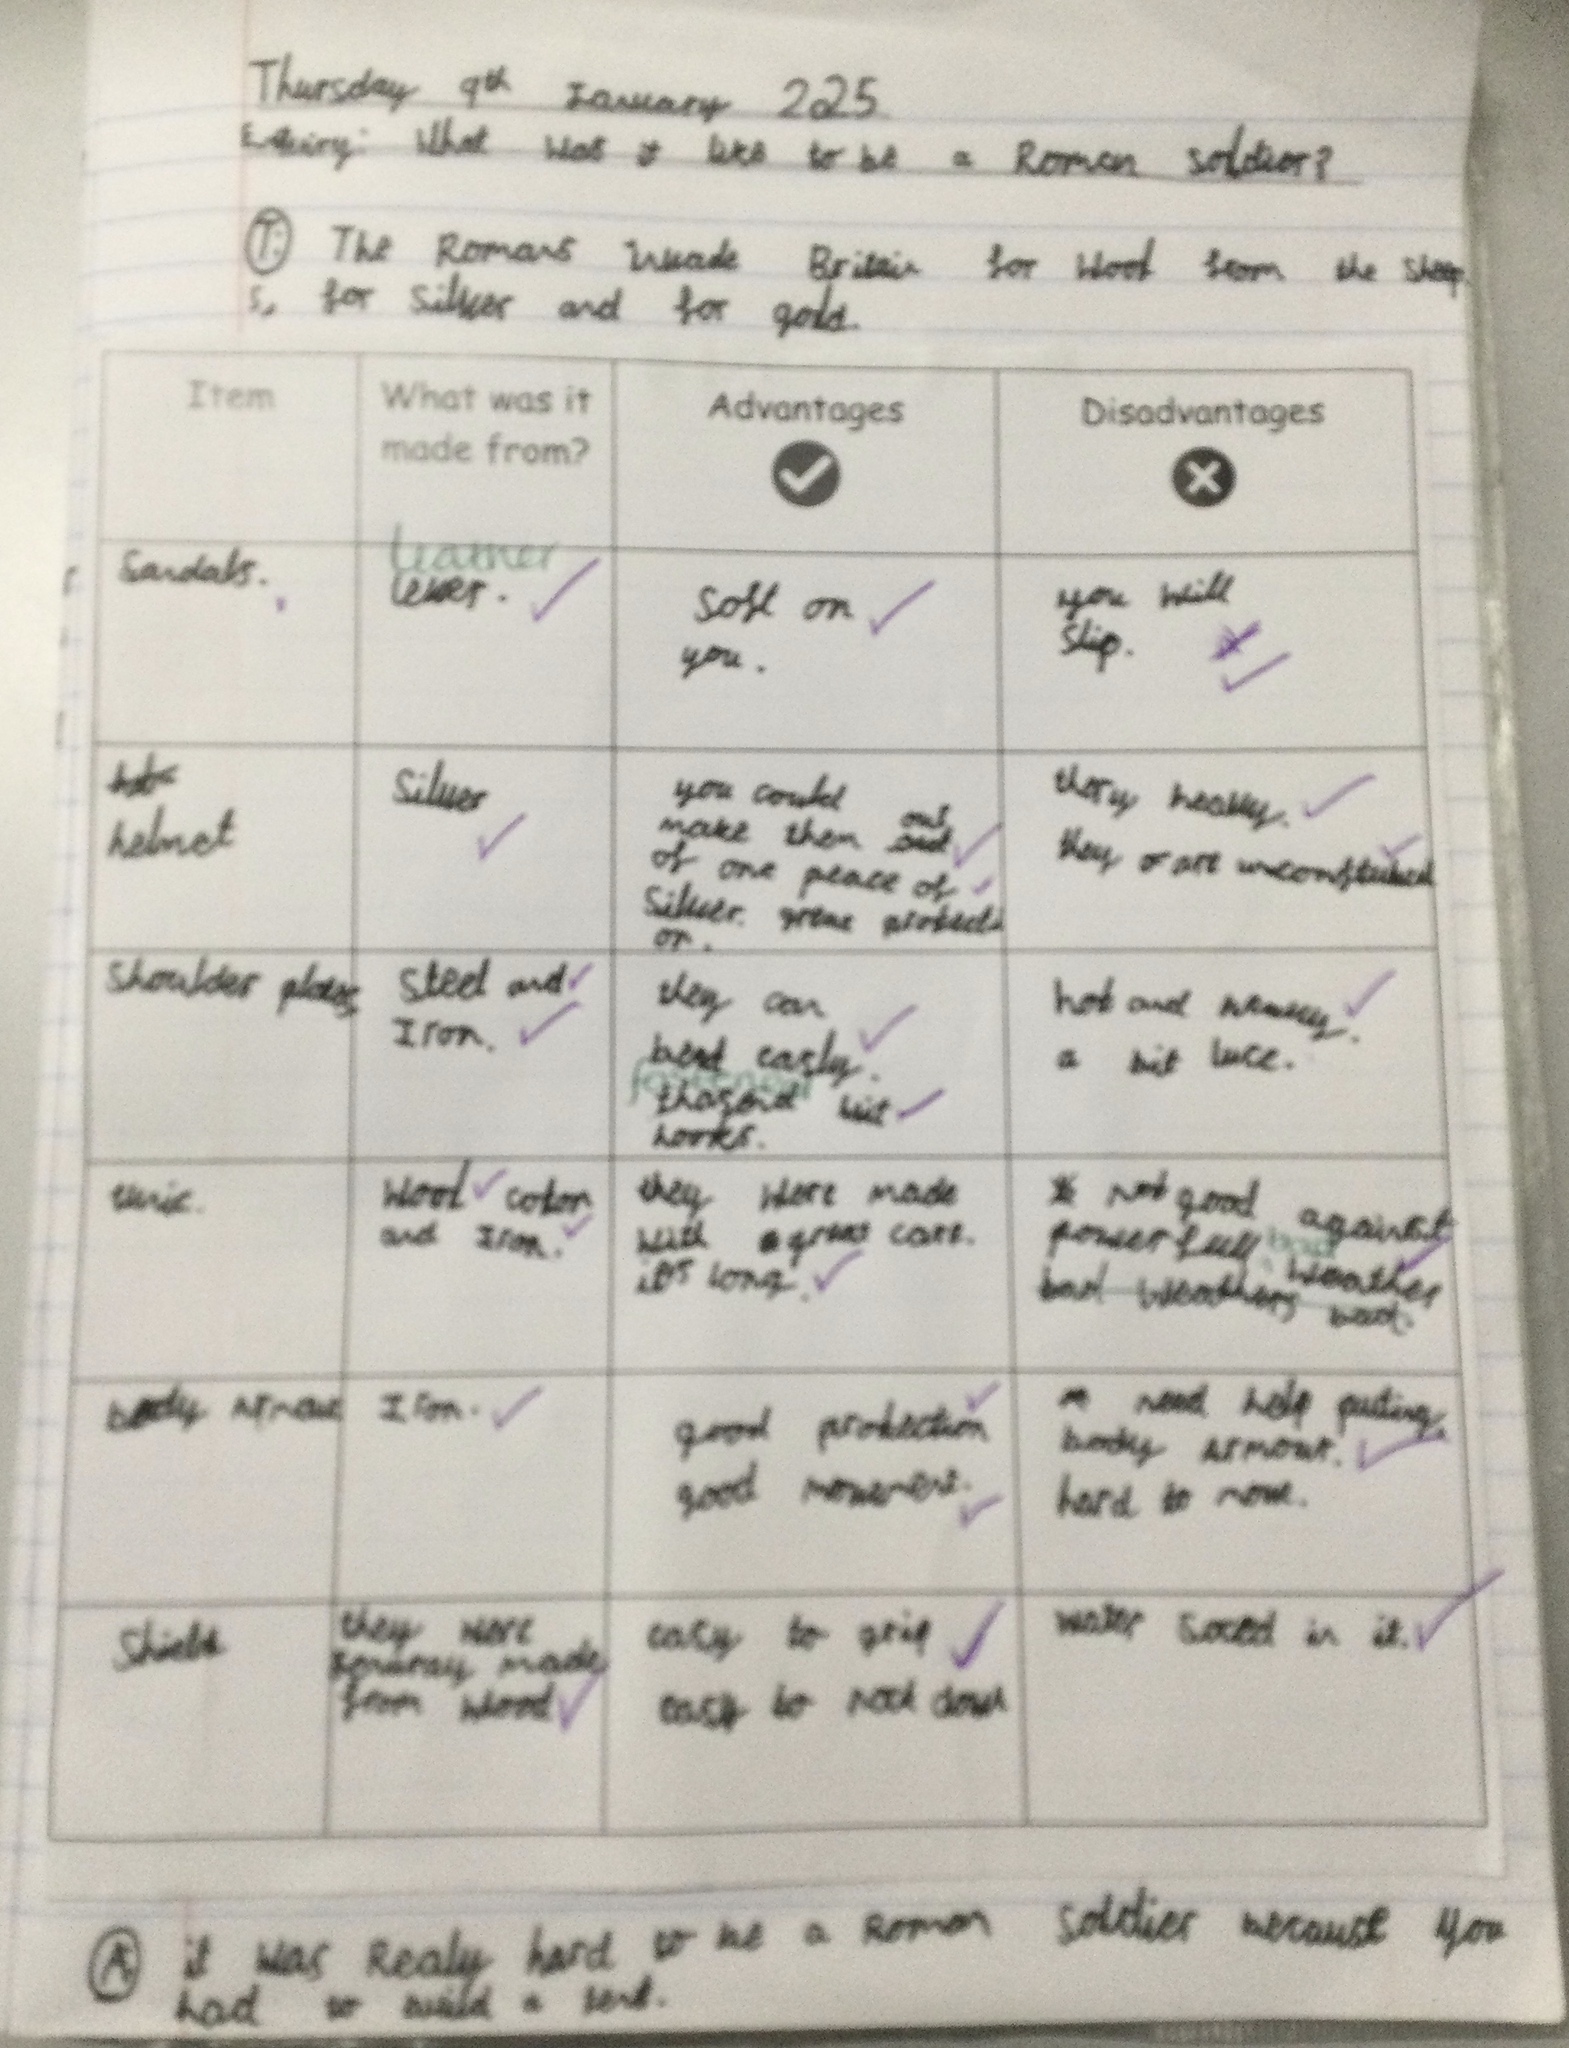 Thursday 9th January 2025
What was it like to be a Roman soldier?
T: The Romans Britain for wool from the sheep
s, for silver and for gold.
Item
What was it
made from?
Advantages
Disadvantages
Sandals.
leather
soft on
you.
you will
slip.
helmet
silver
you could
make them out
of one peace of
silver. great protecti
on.
heavy.
they or are
Shoulder plates
Steel and
Iron.
they can
bend easly.
hooks.
hot and
a bit
tunic.
Wool coton
and Iron.
they were made
with a great care.
it's long.
not good against
powerfull bad
weather
bad
body armour
Iron.
good protection
good movement.
need help puting
body armour.
hard to move.
Shield
they were
made
from wood
easy to grip
easy to nock down
water soced in it.
A: it was Realy hard to be a Roman soldier because you
had to build a tent.